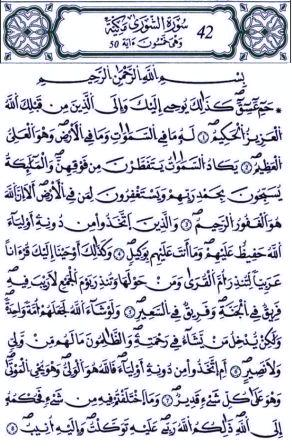 سورة الشورى مكية 42
وهي خمسون ءاية 50
بسم الله الرحمن الرحيم
* حم عسق كذلك يوحي إليك وإلى الذين من قبلك الله
العزيز الحكيم له ما في السموات وما في الأرض وهو العلي
العظيم يكاد السموات يتفطرن من فوقهن والملئكة
يسبحون بحمد ربهم ويستغفرون لمن في الأرض ألا إن الله
هو الغفور الرحيم والذين اتخذوا من دونه أولياء
الله حفيظ عليهم وما أنت عليهم بوكيل وكذلك أوحينا إليك قرءانا
عربيا لتنذر أم القرى ومن حولها وتنذر يوم الجمع لا ريب فيه
فريق في الجنة وفريق في السعير ولو شاء الله لجعلهم أمة واحدة
ولكن يدخل من يشاء في رحمته والظلمون ما لهم من ولي
ولا نصير أم اتخذوا من دونه أولياء فالله هو الولي وهو يحي الموتى
وهو على كل شيء قدير وما اختلفتم فيه من شيء فحكمه
إلى الله ذلكم الله ربي عليه توكلت وإليه أنيب